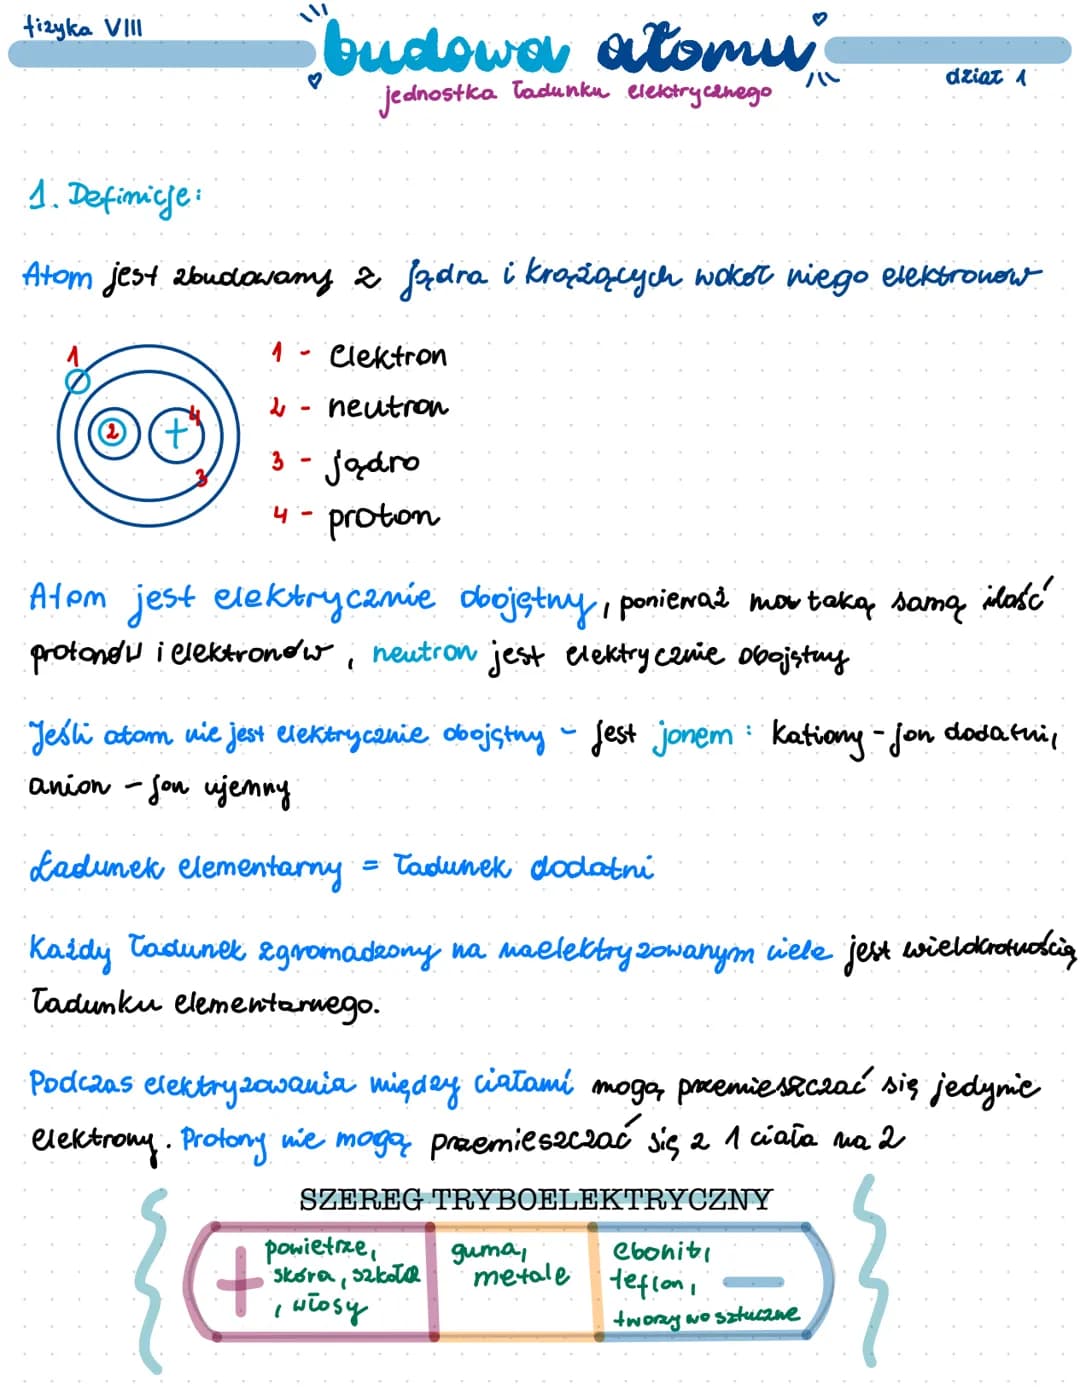 fizyka VIII
budowa atomu
dział 1
jednostka ładunku elektrycznego
1. Definicje:
Atom jest zbudowany z jądra i krążących wokół niego elektronów
1
1 - elektron
2 - neutron
2
+
4
3 - jądro
3
4 - proton
Atom jest elektrycznie obojętny, ponieważ ma taką samą ilość
protonów i elektronów, neutron jest elektrycznie obojętny
Jeśli atom nie jest elektrycznie obojętny - jest jonem: kationy - jon dodatni,
anion - jon ujemny
Ładunek elementarny = ładunek dodatni
Każdy ładunek zgromadzony na naelektryzowanym ciele jest wielokrotnością
ładunku elementarnego.
Podczas elektryzowania między ciałami mogą przemieszczać się jedynie
elektrony. Protony nie mogą przemieszczać się z 1 ciała na 2
SZEREG TRYBOELEKTRYCZNY
+
powietrze,
skóra, szkło
, włosy
guma,
metale
ebonit,
teflon,
tworzywo sztuczne
-